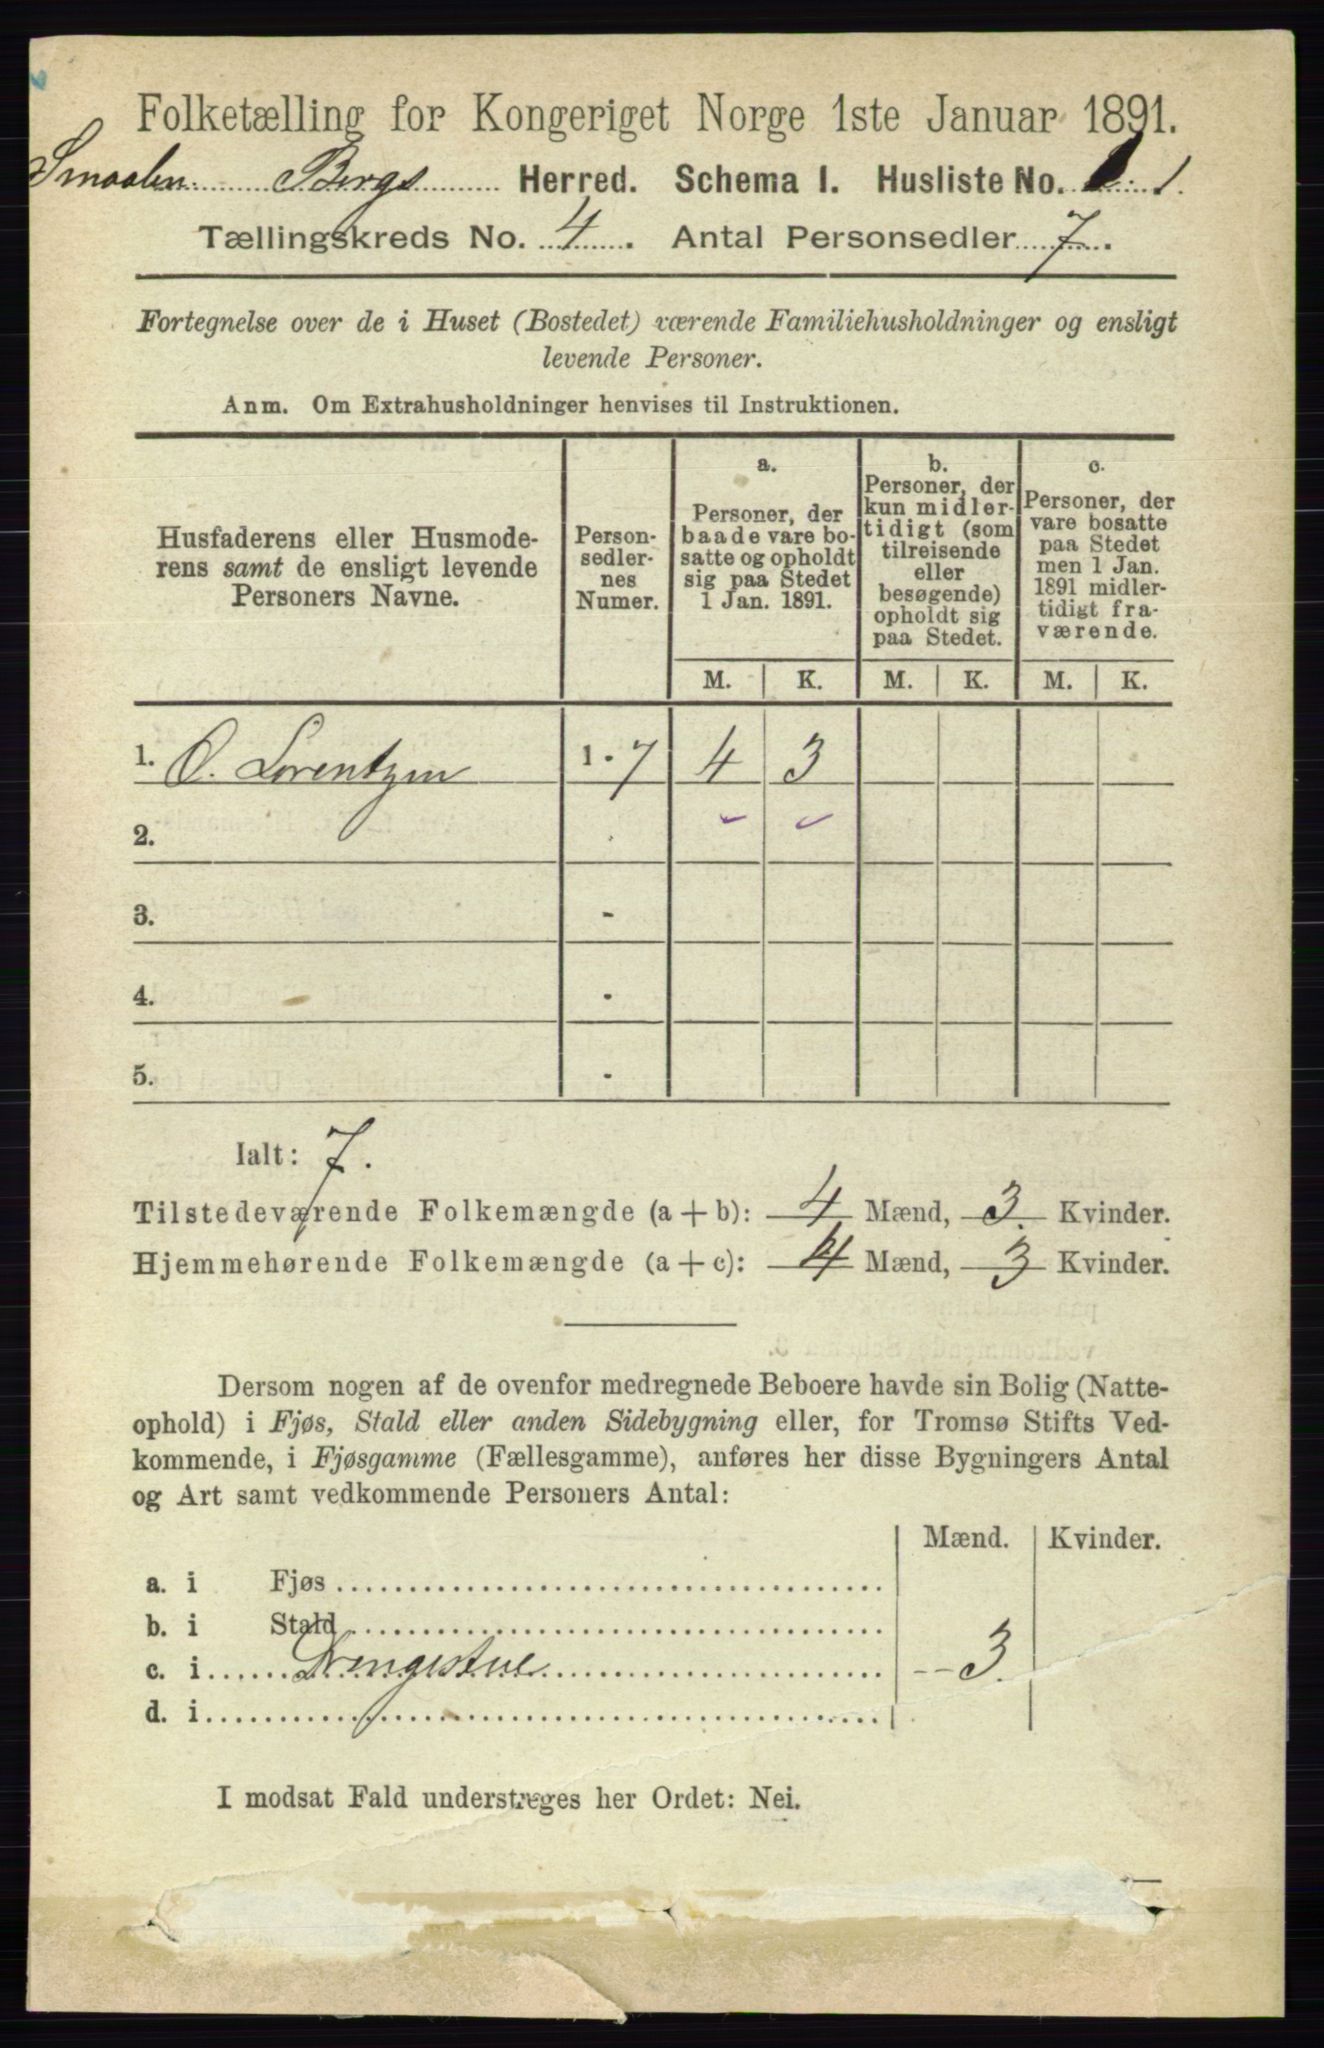 Folketælling for Kongeriget Norge 1ste Januar 1891.
Smaalen Bergs Herred. Schema I. Husliste No. 1
Tællingskreds No. 4. Antal Personsedler 7.
Fortegnelse over de i Huset (Bostedet) værende Familiehusholdninger og ensligt
levende Personer.
Anm. Om Extrahusholdninger henvises til Instruktionen.
Husfaderens eller Husmode-
rens samt de ensligt levende
Personers Navne.
Person-
sedler-
nes
Numer.
a.
Personer, der
baade vare bo-
satte og opholdt
sig paa Stedet
1 Jan. 1891.
b.
Personer, der
kun midler-
tidigt (som
tilreisende
eller
besøgende)
opholdt sig
paa Stedet.
c.
Personer, der
vare bosatte
paa Stedet
men 1 Jan.
1891 midler-
tidigt fra-
værende.
M. K. M. K. M. K.
1. O. Lorentzen 1 - 7 4 3
2.
3. -
4. -
5. -
Ialt: 7.
Tilstedeværende Folkemængde (a + b): 4 Mænd, 3. Kvinder.
Hjemmehørende Folkemængde (a + c): 4 Mænd, 3 Kvinder.
Dersom nogen af de ovenfor medregnede Beboere havde sin Bolig (Natte-
ophold) i Fjøs, Stald eller anden Sidebygning eller, for Tromsø Stifts Ved-
kommende, i Fjøsgamme (Fællesgamme), anføres her disse Bygningers Antal
og Art samt vedkommende Personers Antal:
Mænd. Kvinder.
a. i Fjøs
b. i Stald
c. i Drengestue -- 3.
d. i
I modsat Fald understreges her Ordet: Nei.